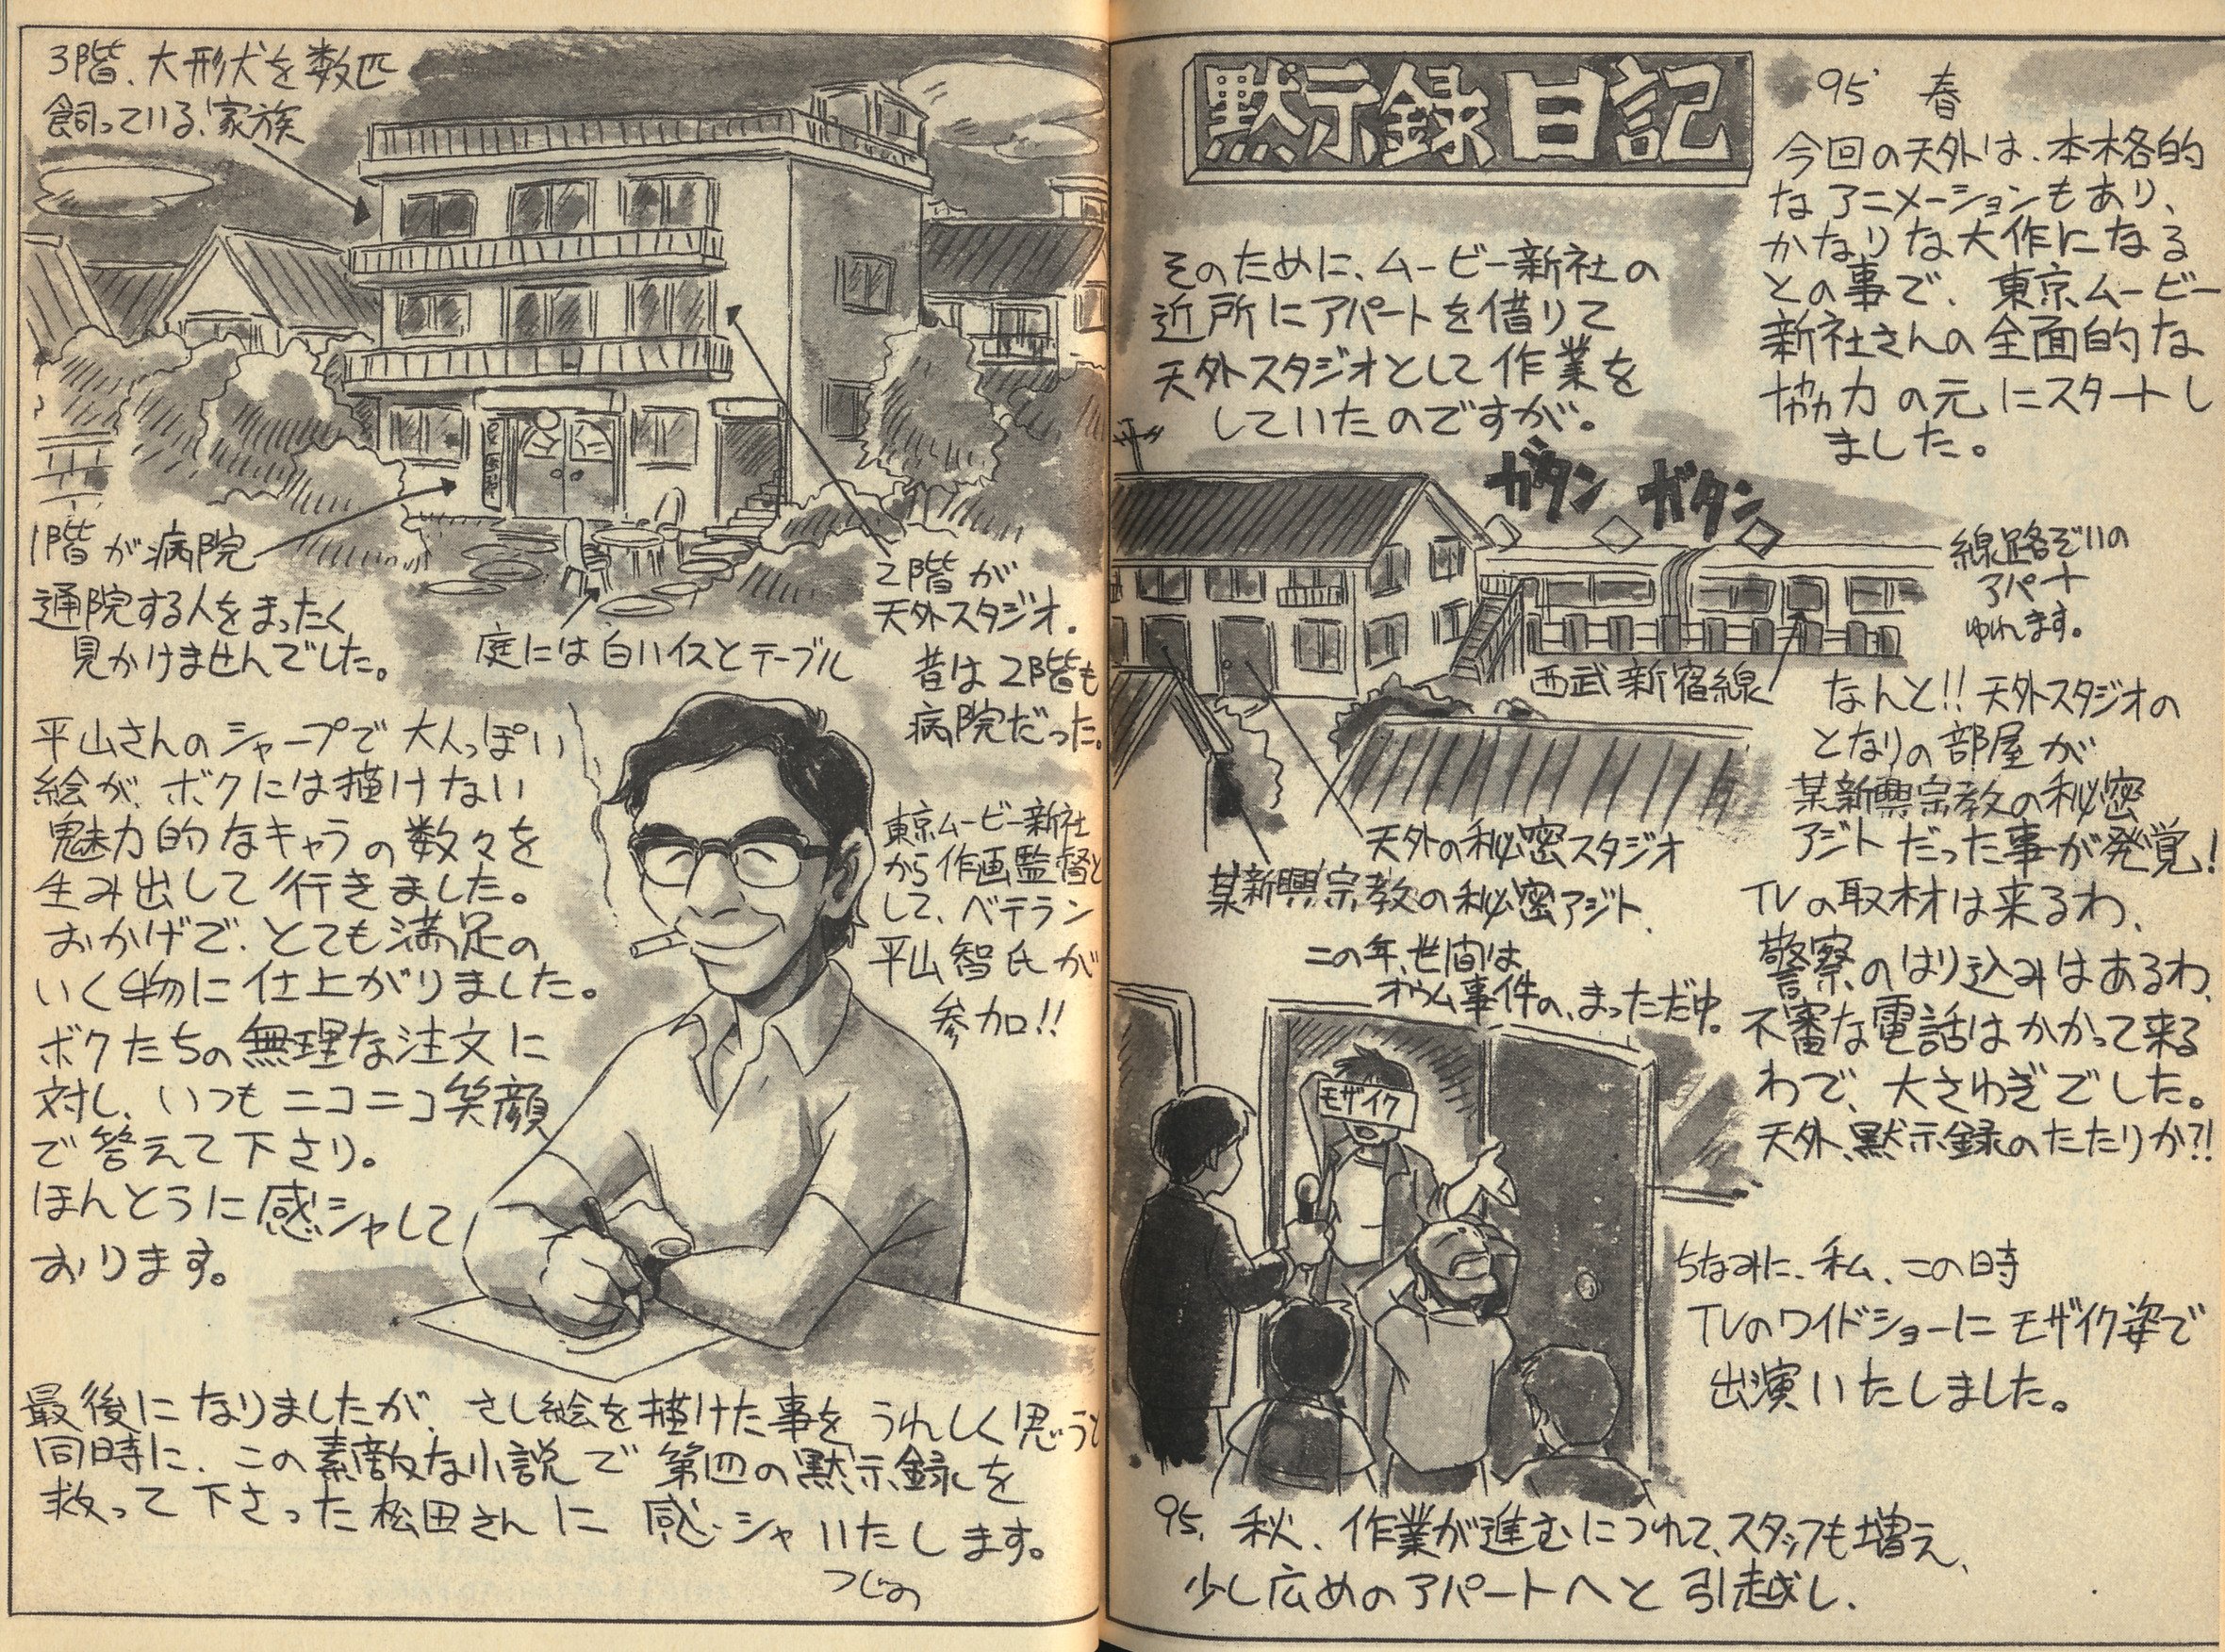 黙示録日記
95' 春
今回の天外は、本格的
なアニメーションもあり、
かなりな大作になる
との事で、東京ムービー
新社さんの全面的な
協力の元にスタートし
ました。
そのために、ムービー新社の
近所にアパートを借りて
天外スタジオとして作業を
していたのですが。
ガタン ガタン
線路ぞいの
アパート
ゆれます。
西武新宿線
天外の秘密スタジオ
某新興宗教の秘密アジト.
なんと!! 天外スタジオの
となりの部屋が
某新興宗教の秘密
アジトだった事が発覚!
TVの取材は来るわ、
警察のはり込みはあるわ、
不審な電話はかかって来る
わで、大さわぎでした。
天外、黙示録のたたりか?!
この年、世間は
オウム事件の、まっただ中。
モザイク
ちなみに、私、この時
TVのワイドショーに モザイク姿で
出演いたしました。
95, 秋、作業が進むにつれて、スタッフも増え、
少し広めのアパートへと引越し、
3階、大形犬を数匹
飼っている、家族
1階が病院
通院する人をまったく
見かけませんでした。
庭には白いイスとテーブル
2階が
天外スタジオ.
昔は2階も
病院だった。
東京ムービー新社
から作画監督と
して、ベテラン
平山智氏が
参加!!
平山さんのシャープで大人っぽい
絵が、ボクには描けない
魅力的なキャラの数々を
生み出して行きました。
おかげで、とても満足の
いく物に仕上がりました。
ボクたちの無理な注文に
対し、いつもニコニコ笑顔
で答えて下さり。
ほんとうに感シャして
おります。
最後になりましたが、さし絵を描けた事を うれしく思うと
同時に、この素敵な小説で第四の黙示録を
救って下さった松田さんに感シャいたします。
つじの